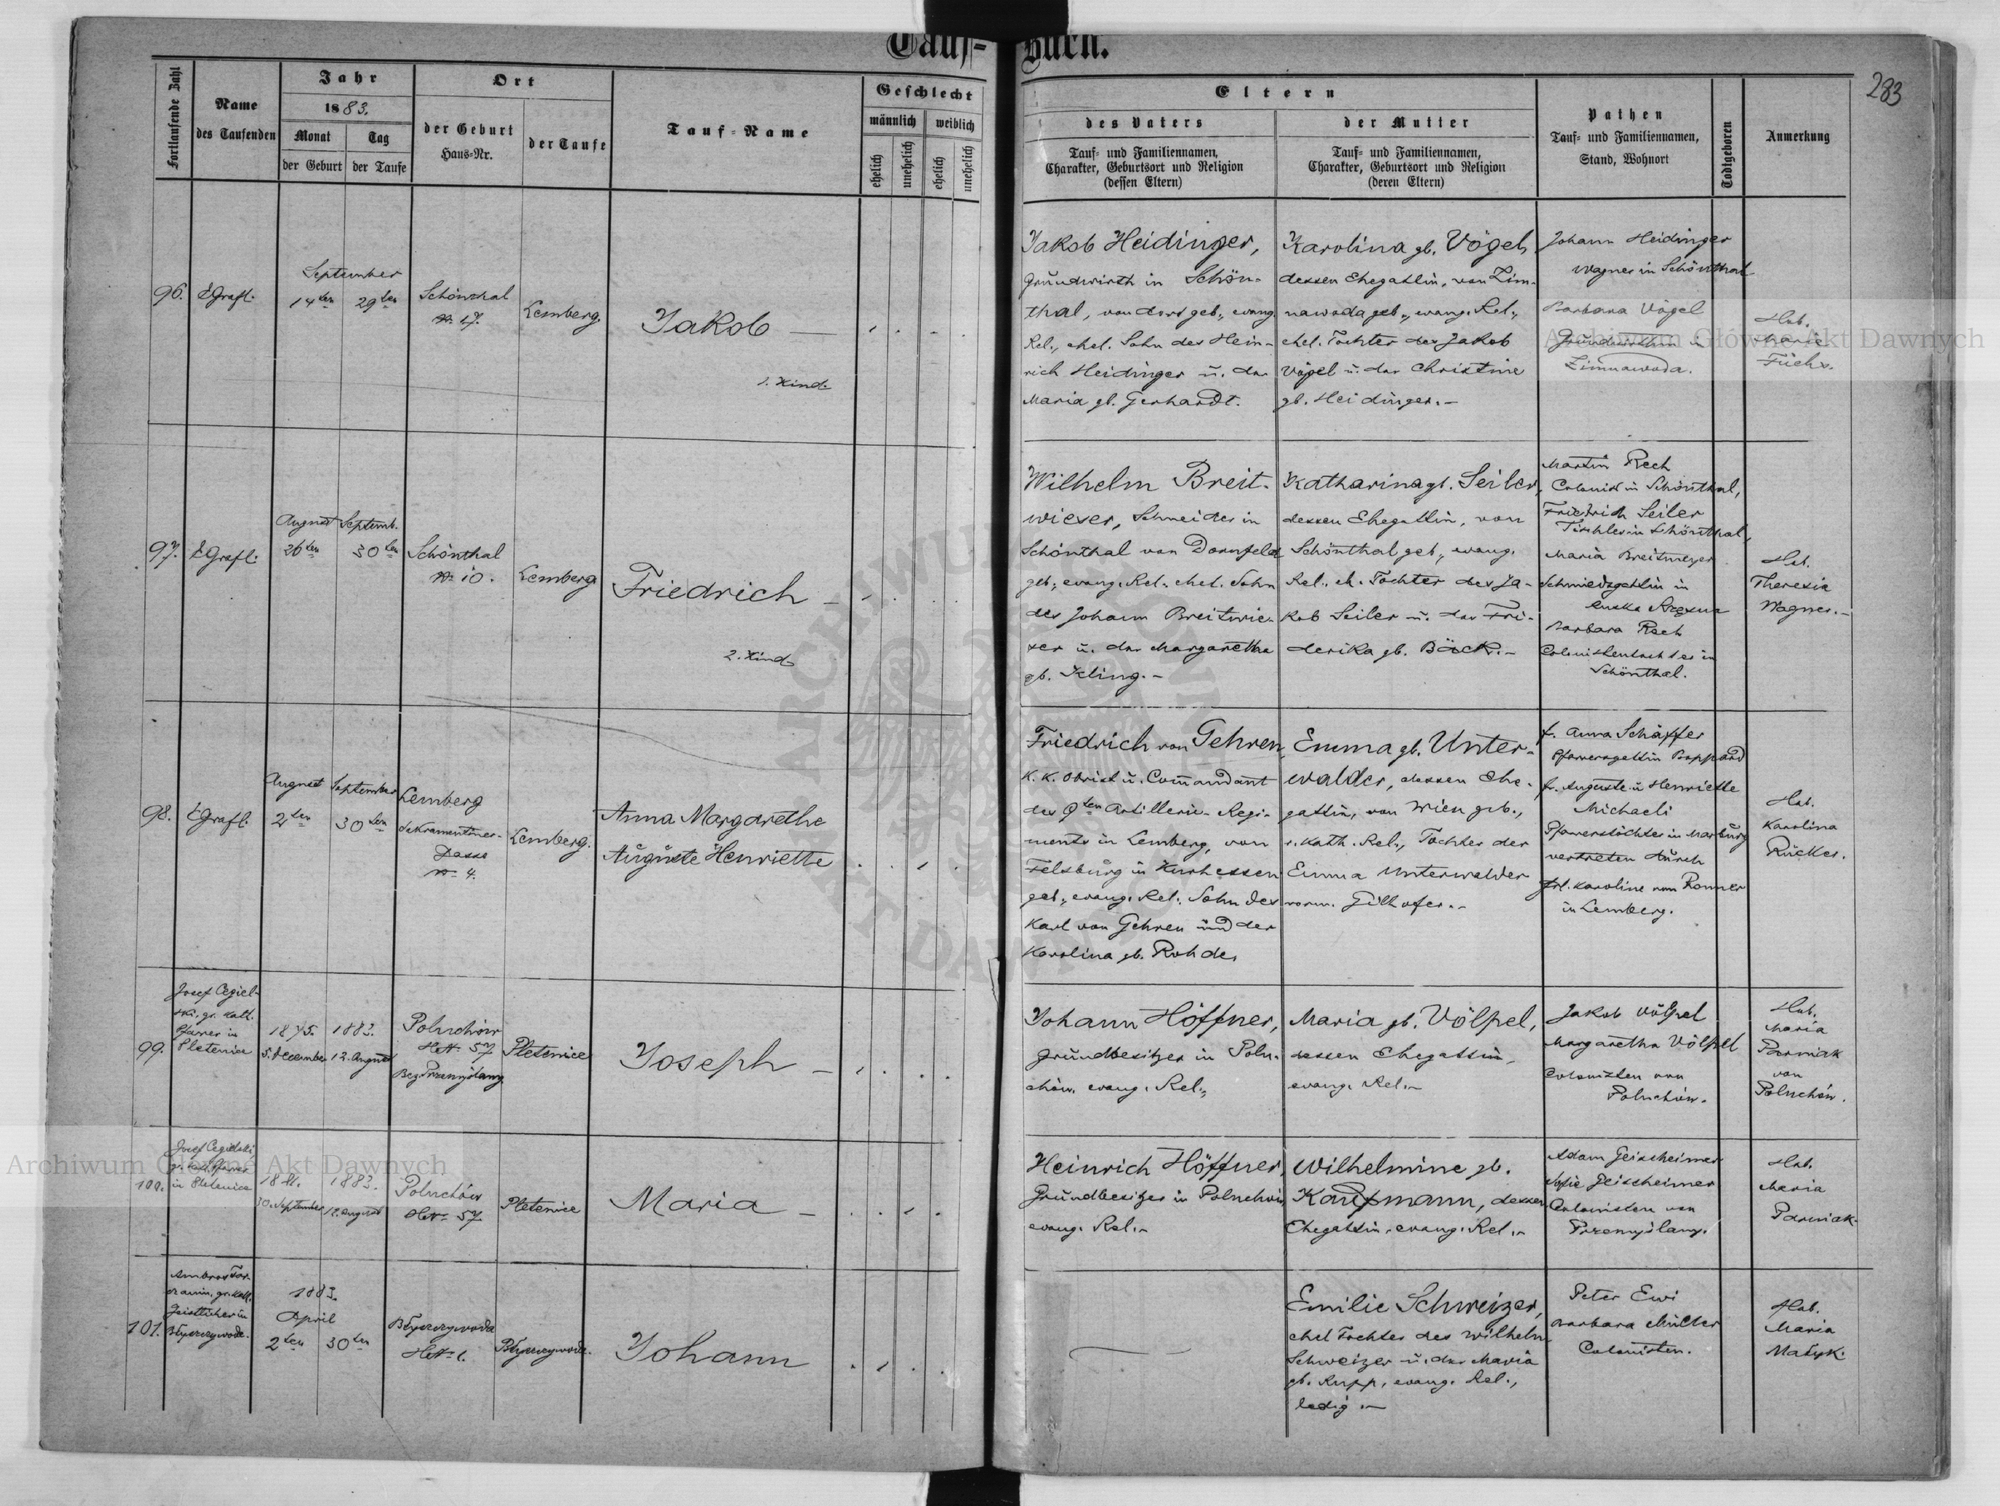 Tauf-Buch.
283
Fortlaufende Zahl
Name
des Taufenden
Jahr
1883.
Monat
der Geburt
Tag
der Taufe
Ort
der Geburt
Haus-Nr.
der Taufe
Tauf-Name
Geschlecht
männlich
weiblich
ehelich
unehelich
ehelich
unehelich
Eltern
des Vaters
Tauf- und Familiennamen,
Charakter, Geburtsort und Religion
(dessen Eltern)
der Mutter
Tauf- und Familiennamen,
Charakter, Geburtsort und Religion
(deren Eltern)
Pathen
Tauf- und Familiennamen,
Stand, Wohnort
Todtgeboren
Anmerkung
96.
EGrafl.
September
14ten
29ten
Schönthal
N. 17.
Lemberg.
Jakob
1. Kind
Jakob Heidinger,
Grundwirth in Schön-
thal, von dort geb., evang.
Rel., ehel. Sohn des Hein-
rich Heidinger u. der
Maria gb. Gerhardt.
Karolina gb. Vögel,
dessen Ehegattin, von Zim-
nawoda geb., evang. Rel.,
ehel. Tochter des Jakob
Vögel u. der Christine
gb. Heidinger.-
Johann Heidinger
Wagner in Schönthal
Barbara Vögel
Grundwirthin in
Zimnawoda.
Heb.
Marie
Fuchs.
97.
EGrafl.
August
26ten
Septemb.
30ten
Schönthal
N. 10.
Lemberg
Friedrich
2. Kind
Wilhelm Breit-
wieser, Schneider in
Schönthal von Dornfeld
geb., evang. Rel. ehel. Sohn
des Johann Breitwie-
ser u. der Margaretha
gb. Kling.-
Katharina gb. Seiler,
dessen Ehegattin, von
Schönthal geb., evang.
Rel. eh. Tochter des Ja-
kob Seiler u. der Fri-
derika gb. Böck.-
Martin Rech
Colonist in Schönthal,
Friedrich Seiler
Tischler in Schönthal,
Maria Breitmeyer
Schmiedsgattin in
Barbara Rech
Colonistentochter in
Schönthal.
Heb.
Theresia
Wagner.-
98.
EGrafl.
August
2ten
September
30ten
Lemberg
Sakramentiner-
Gasse
N. 4.
Lemberg.
Anna Margarethe
Auguste Henriette
Friedrich von Gehren,
K. K. Obrist u. Commandant
des 9ten Artillerie-Regi-
ments in Lemberg, von
Felsburg in Kurhessen
geb., evang. Rel. Sohn des
Karl von Gehren und der
Karolina gb. Rohde,
Emma gb. Unter-
walder, dessen Ehe-
gattin, von Wien geb.,
r. kath. Rel., Tochter der
Emma Unterwalder
vorm. Gillhofer.-
f. Anna Schäffer
Pfarrersgattin
fr. Auguste u Henriette
Michaeli
Pfarrerstöchter in Marburg
vertreten durch
frl. Karoline von Ronner
in Lemberg.
Heb.
Karolina
Rücker.
99.
Josef Cegiel-
ski. gr. kath.
Pfarrer in
Pletenice
1875.
5. December
1883.
12. August
Poluchów
HN. 57
Bez. Przemyślany
Pletenice
Joseph
Johann Höffner,
Grundbesitzer in Polu-
chów, evang. Rel.,
Maria gb. Völpel,
dessen Ehegattin,
evang. Rel.-
Jakob Völpel
Margaretha Völpel
Colonisten von
Poluchów.
Heb.
Maria
Parniak
von
Poluchów.
100.
Josef Cegielski,
gr. kath. Pfarrer
in Pletenice
1881.
30. September
1883.
12. August
Poluchów
HN. 57
Pletenice
Maria
Heinrich Höffner,
Grundbesitzer in Poluchów
evang. Rel.-
Wilhelmine gb.
Kaufmann, dessen
Ehegattin, evang. Rel.-
Adam Geissheimer
Sofie Geissheimer
Colonisten von
Przemyślany.
Heb.
Maria
Parniak.
101.
gr. kath.
Geistlicher in
Błyszczywode.
1883.
April
2ten
30ten
Błyszczywoda
HN. 1.
Błyszczywoda.
Johann
Emilie Schweizer,
ehel Tochter des Wilhelm
Schweizer u. der Maria
gb. Rupp, evang. Rel.,
ledig.-
Peter Ewi
Barbara Müller
Colonisten.
Heb.
Maria
Matyk.
Archiwum Główne Akt Dawnych
Archiwum Główne Akt Dawnych